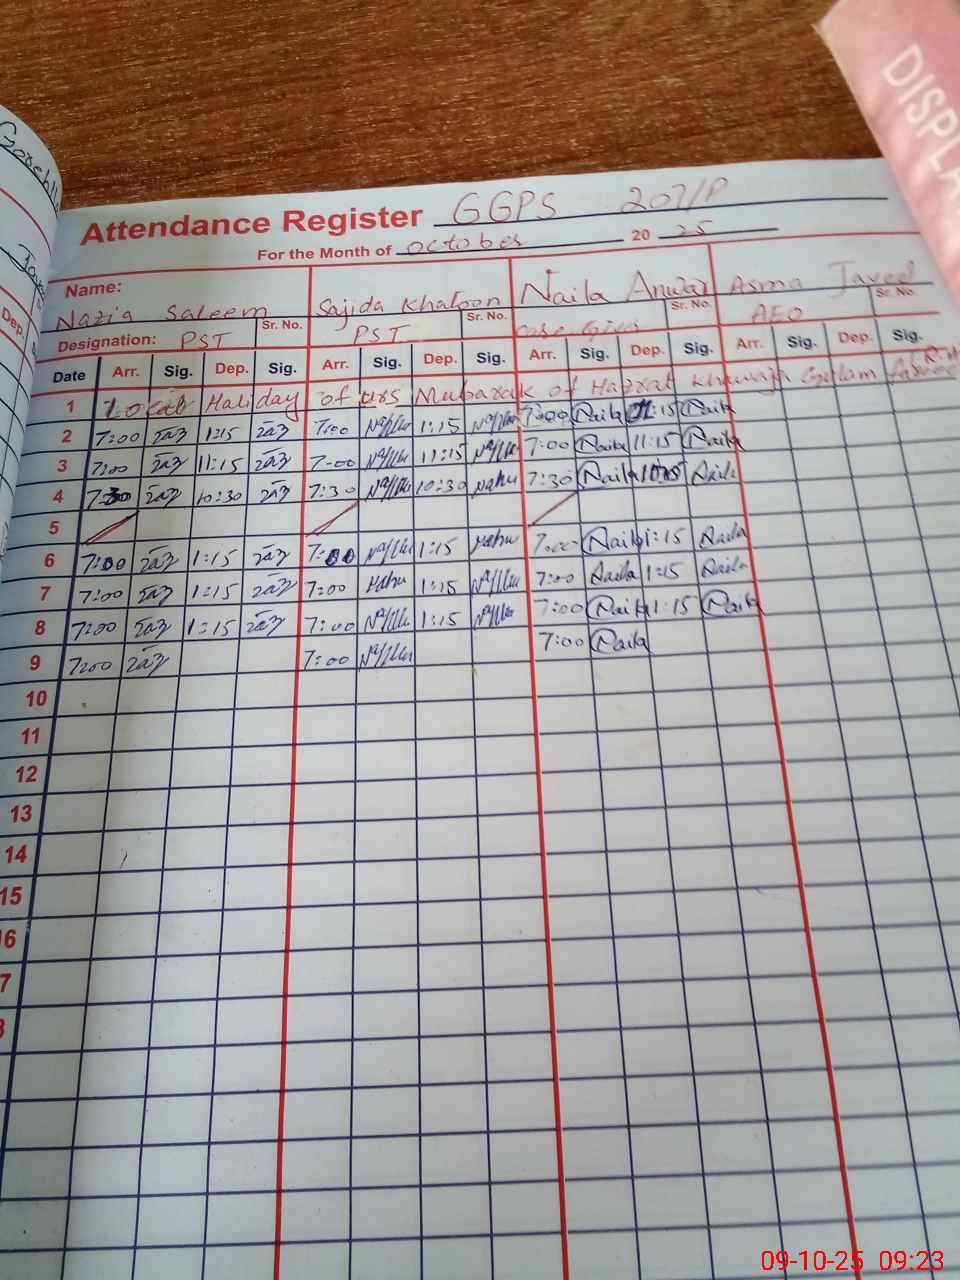 DISPLA
Attendance Register GGPS 207/P
For the Month of October 20 25
Name: Nazia Saleem Sajida Khatoon Naila Anwar Asma Javeed
Designation: PST Sr. No. PST Sr. No. Sr. No. AEO Sr. No.
Date Arr. Sig. Dep. Sig. Arr. Sig. Dep. Sig. Arr. Sig. Dep. Sig. Arr. Sig. Dep. Sig.
1 Local Haliday of urs Mubarak of Hazrat Khuwaja Gulam
2 7:00 1:15 7:00 1:15 7:00 Naila 11:15 Naila
3 7:00 11:15 7:00 11:15 7:00 Naila 11:15 Naila
4 7:30 10:30 7:30 10:30 7:30 Naila Naila
5
6 7:00 1:15 7:00 1:15 7:00 Naila 1:15 Naila
7 7:00 1:15 7:00 1:15 7:00 Naila 1:15 Naila
8 7:00 1:15 7:00 1:15 7:00 Naila 1:15 Naila
9 7:00 7:00 7:00 Naila
10
11
12
13
14
15
16
7
09-10-25 09:23